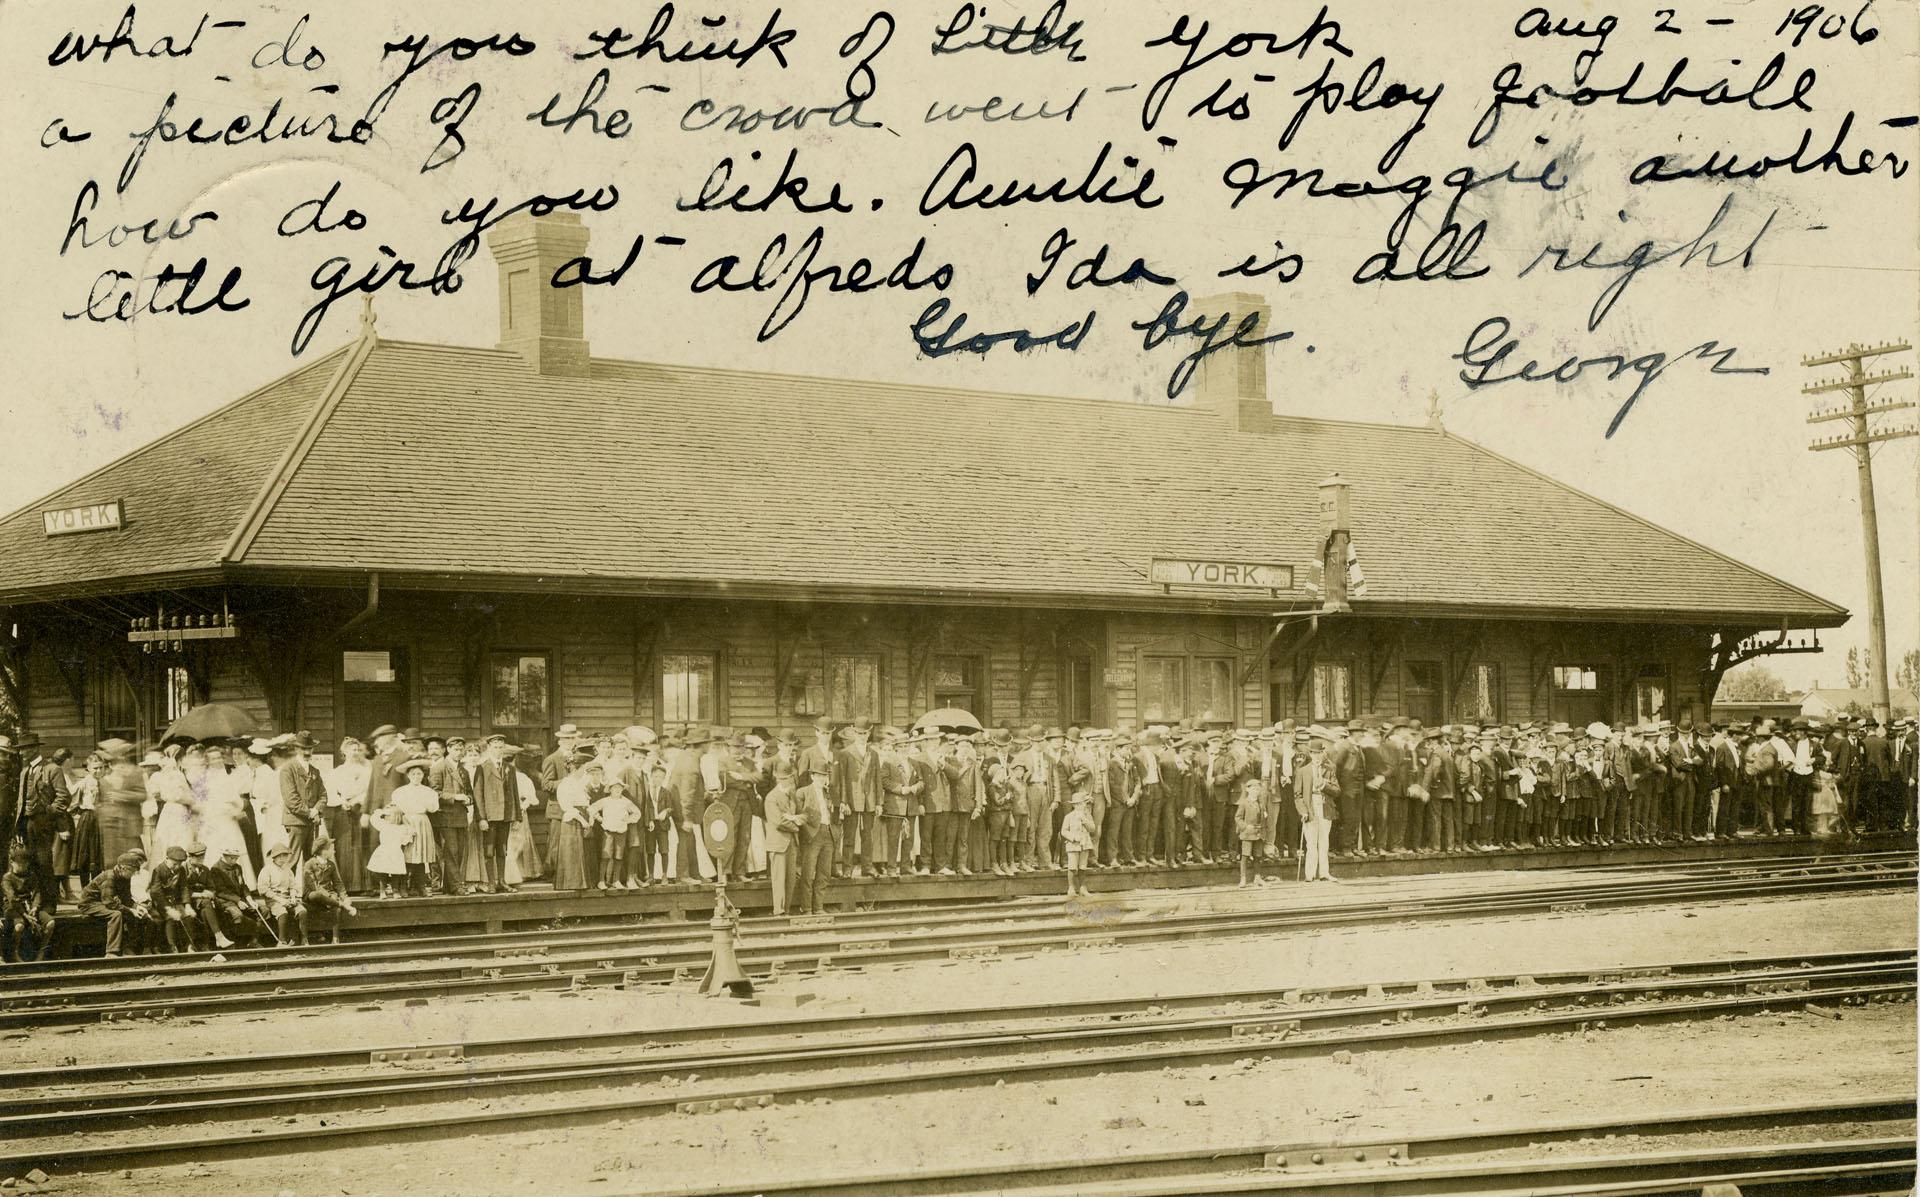 what do you think of Little York Aug 2 - 1906
a picture of the crowd went to play football
how do you like. Auntie Maggie another
little girl at alfreds Ida is all right
Good bye. George
YORK.
YORK.
TELEGRAPH